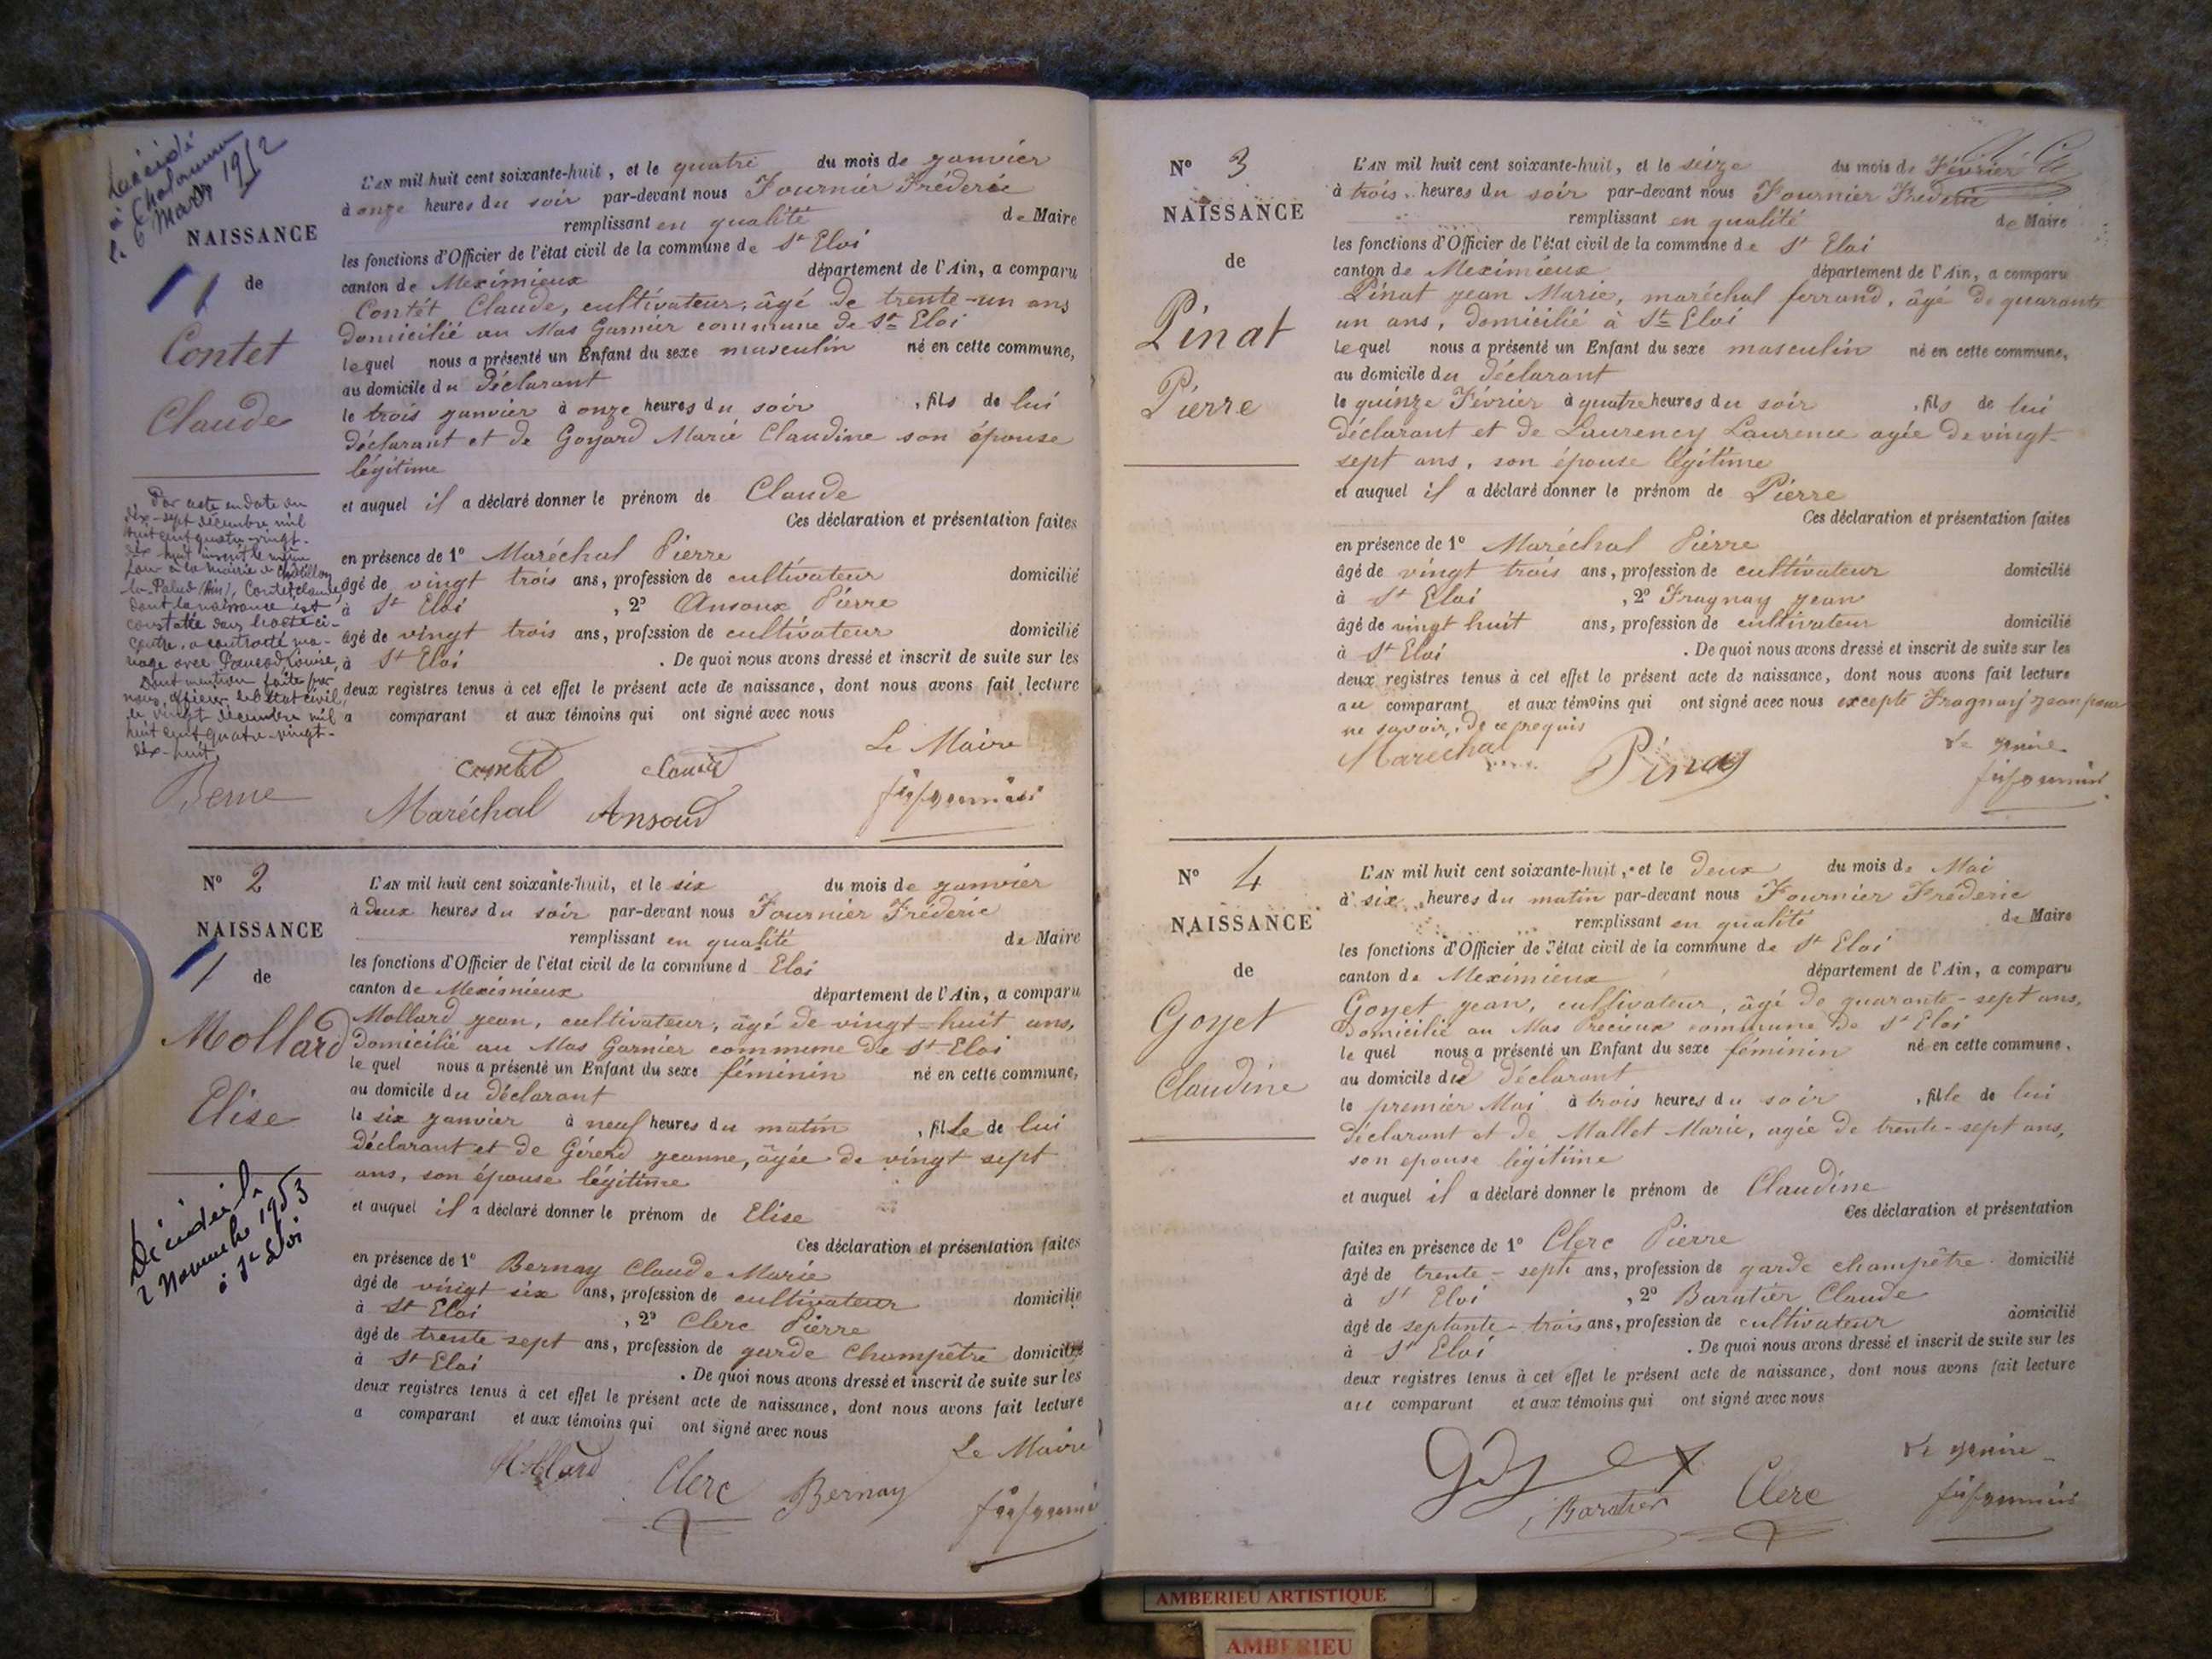 Décédé
à Chalamont
le 6 Mars 1912
NAISSANCE
de
Contet
Claude
L'AN mil huit cent soixante-huit, et le quatre du mois de janvier
à onze heures du soir par-devant nous Fournier Fréderic
remplissant en qualité de Maire
les fonctions d'Officier de l'état civil de la commune de St Eloi
canton de Meximieux département de l'Ain, a comparu
Contét Claude, cultivateur, âgé de trente-un ans
domicilié au Mas Garnier commune de St Eloi
lequel nous a présenté un Enfant du sexe masculin né en cette commune,
au domicile du déclarant
le trois janvier à onze heures du soir , fils de lui
déclarant et de Goyard Marie Claudine son épouse
légitime
et auquel il a déclaré donner le prénom de Claude
Ces déclaration et présentation faites
en présence de 1° Maréchal Pierre
âgé de vingt trois ans, profession de cultivateur domicilié
à St Eloi , 2° Ansoux Pierre
âgé de vingt trois ans, profession de cultivateur domicilié
à St Eloi . De quoi nous avons dressé et inscrit de suite sur les
deux registres tenus à cet effet le présent acte de naissance, dont nous avons fait lecture
a comparant et aux témoins qui ont signé avec nous
Par acte en date du
dix-sept décembre mil
huit cent quatre-vingt-
dix huit inscrit le même
jour à la mairie de Châtillon
la-Palud (Ain), Contet Claude,
dont la naissance est
constatée dans l'acte ci-
contre, a contracté ma-
riage avec Louise,
Dont mention faite par
nous, officier de l'état civil,
le vingt décembre mil
huit cent quatre-vingt-
dix-huit.
Berne
Le Maire
contet claude
Maréchal Ansoud
N° 2
NAISSANCE
de
Mollard
Elise
Décédée le
2 Novembre 1953
à St Eloi
L'AN mil huit cent soixante-huit, et le six du mois de janvier
à deux heures du soir par-devant nous Fournier Fréderic
remplissant en qualité de Maire
les fonctions d'Officier de l'état civil de la commune d Eloi
canton de Meximieux département de l'Ain, a comparu
Mollard jean, cultivateur, âgé de vingt-huit ans,
domicilié au Mas Garnier commune de St Eloi
le quel nous a présenté un Enfant du sexe féminin né en cette commune,
au domicile du déclarant
le six janvier à neuf heures du matin , fille de lui
déclarant et de Gérerd jeanne, âgée de vingt sept
ans, son épouse légitime
et auquel il a déclaré donner le prénom de Elise
Ces déclaration et présentation faites
en présence de 1° Bernay Claude Marie
âgé de vingt six ans, profession de cultivateur domicilié
à St Eloi , 2° Clerc Pierre
âgé de trente sept ans, profession de garde Champêtre domicilié
à St Eloi . De quoi nous avons dressé et inscrit de suite sur les
deux registres tenus à cet effet le présent acte de naissance, dont nous avons fait lecture
a comparant et aux témoins qui ont signé avec nous
Le Maire
Mollard Clerc Bernay
N° 3
NAISSANCE
de
Pinat
Pierre
L'AN mil huit cent soixante-huit, et le seize du mois de Février
à trois heures du soir par-devant nous Fournier Frederic
remplissant en qualité de Maire
les fonctions d'Officier de l'état civil de la commune de St Eloi
canton de Meximieux département de l'Ain, a comparu
Pinat jean Marie, maréchal ferrand, âgé de quarante
un ans, domicilié à St Eloi
lequel nous a présenté un Enfant du sexe masculin né en cette commune,
au domicile du déclarant
le quinze Février à quatre heures du soir , fils de lui
déclarant et de Laurency Laurence agée de vingt-
sept ans, son épouse légitime
et auquel il a déclaré donner le prénom de Pierre
Ces déclaration et présentation faites
en présence de 1° Maréchal Pierre
âgé de vingt trois ans, profession de cultivateur domicilié
à St Eloi , 2° Fragnay jean
âgé de vingt huit ans, profession de cultivateur domicilié
à St Eloi . De quoi nous avons dressé et inscrit de suite sur les
deux registres tenus à cet effet le présent acte de naissance, dont nous avons fait lecture
au comparant et aux témoins qui ont signé avec nous excepté Fragnay jean pour
ne savoir, de ce requis
Maréchal Pinay
N° 4
NAISSANCE
de
Goyet
Claudine
L'AN mil huit cent soixante-huit, et le deux du mois de Mai
à six heures du matin par-devant nous Fournier Fréderic
remplissant en qualité de Maire
les fonctions d'Officier de l'état civil de la commune de St Eloi
canton de Meximieux département de l'Ain, a comparu
Goyet jean, cultivateur, âgé de quarante-sept ans,
domicilié au Mas Precieux commune de St Eloi
le quel nous a présenté un Enfant du sexe féminin né en cette commune,
au domicile du déclarant
le premier Mai à trois heures du soir , fille de lui
déclarant et de Mallet Marie, agée de trente-sept ans,
son epouse légitime
et auquel il a déclaré donner le prénom de Claudine
Ces déclaration et présentation
faites en présence de 1° Clerc Pierre
âgé de trente-sept ans, profession de garde champêtre domicilié
à St Eloi , 2° Baratier Claude
âgé de septante-trois ans, profession de cultivateur domicilié
à St Eloi . De quoi nous avons dressé et inscrit de suite sur les
deux registres tenus à cet effet le présent acte de naissance, dont nous avons fait lecture
au comparant et aux témoins qui ont signé avec nous
Goyet Baratier Clerc
AMBERIEU ARTISTIQUE
AMBERIEU